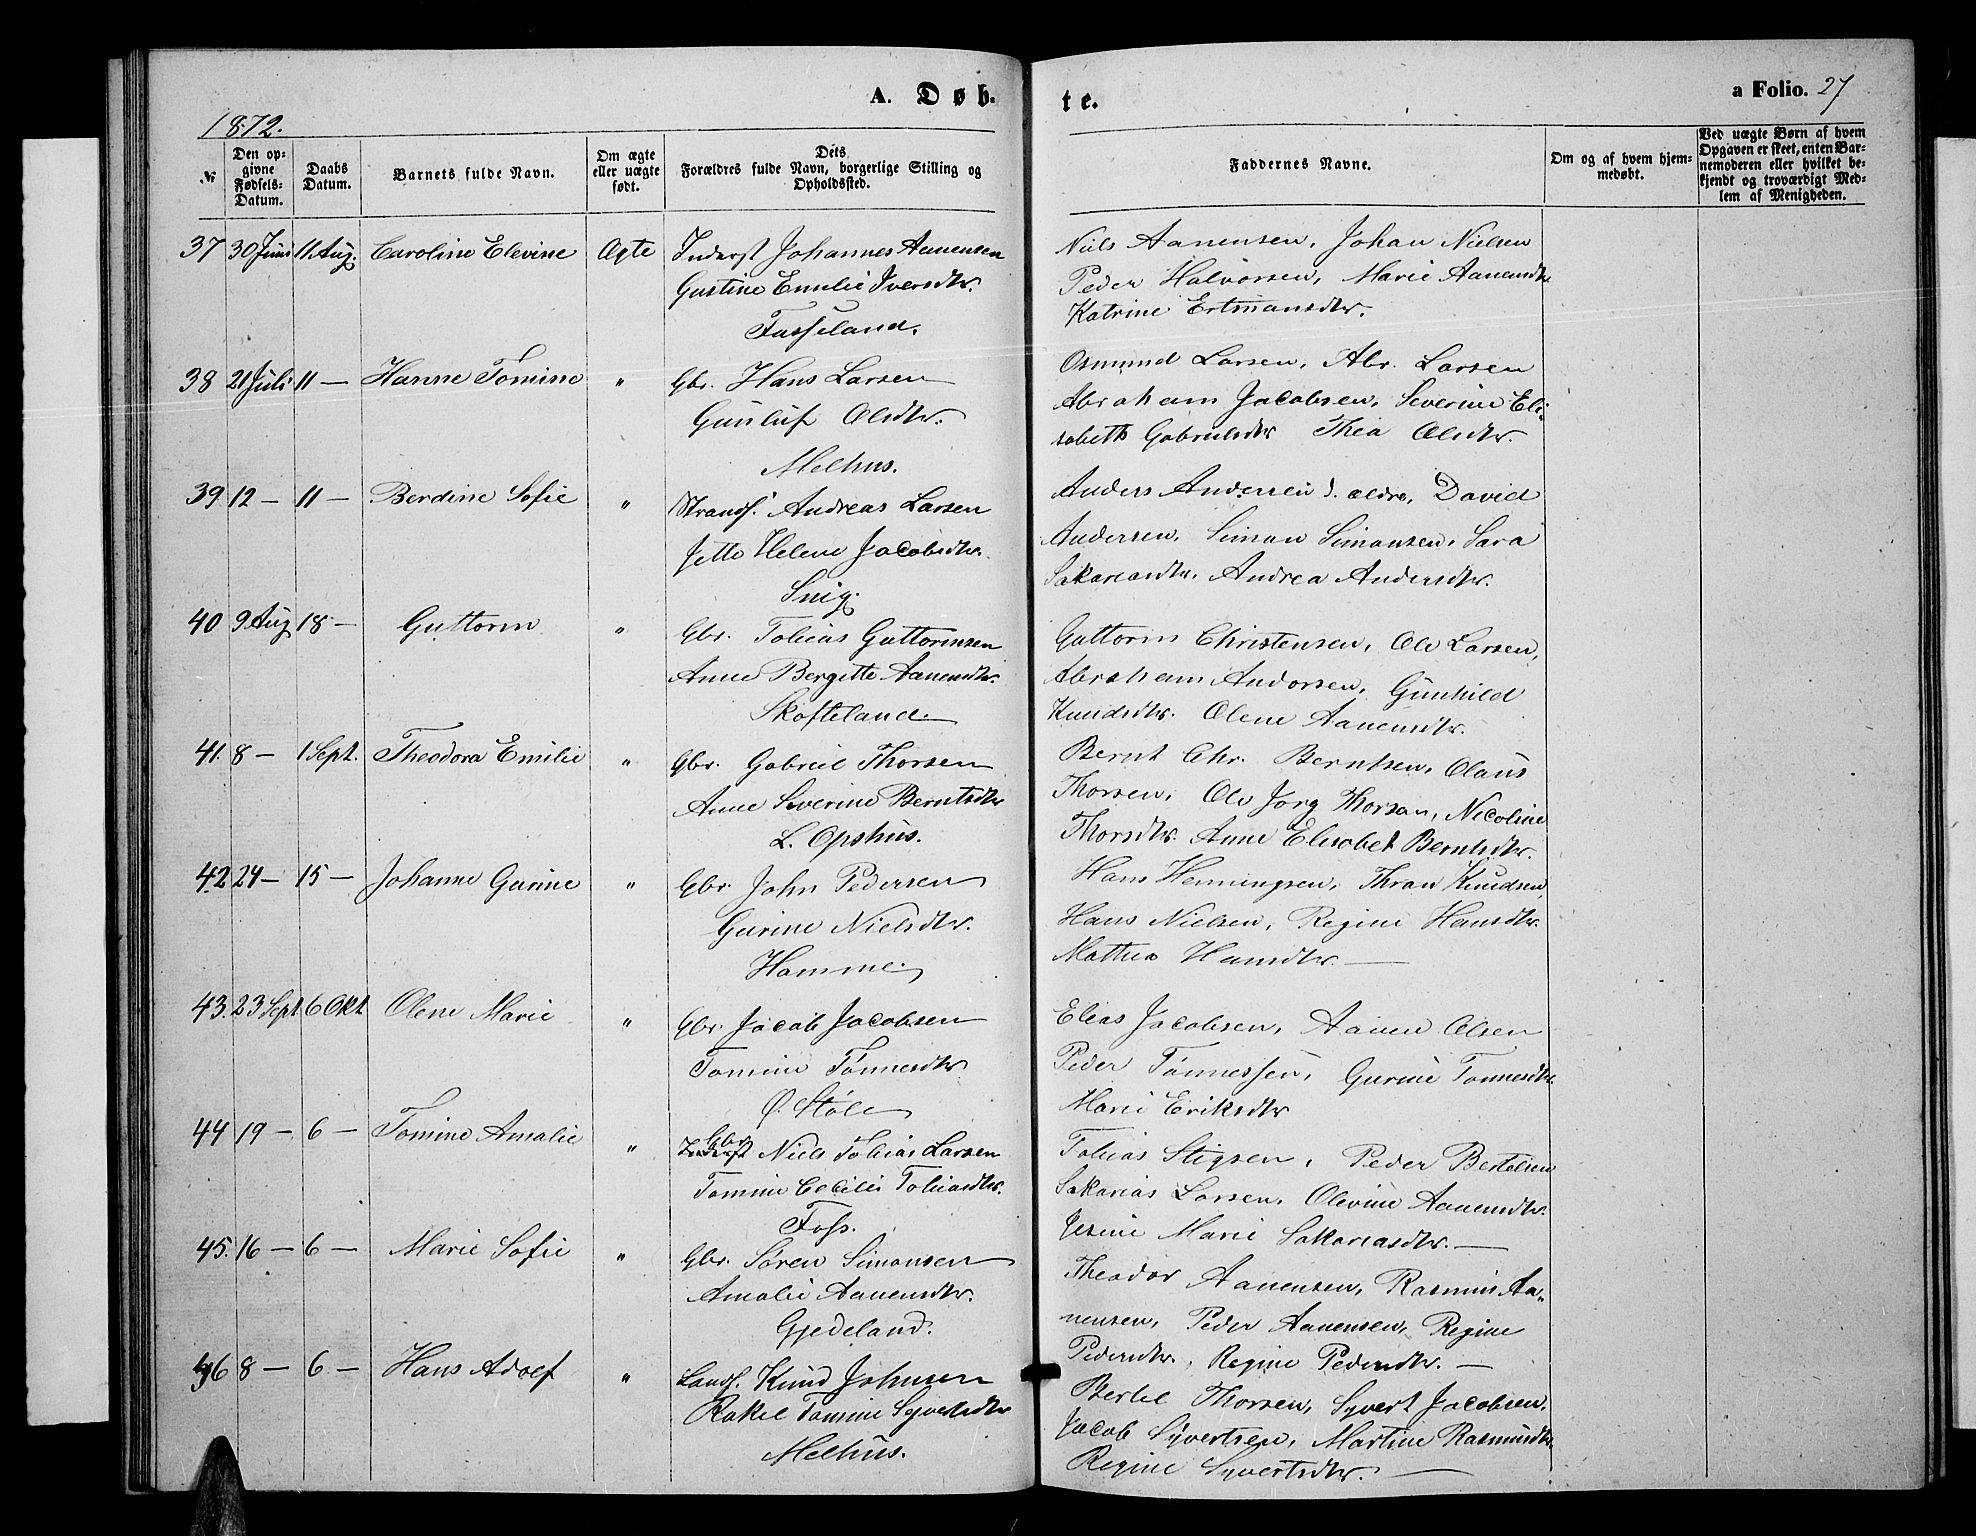 A. Døb-
te.
a Folio. 27
1872.
№
Den opgivne Fødsels-Datum.
Daabs Datum.
Barnets fulde Navn.
Om ægte eller uægte født.
Dets Forældres fulde Navn, borgerlige Stilling og Opholdssted.
Faddernes Navne.
Om og af hvem hjemmedøbt.
Ved uægte Børn af hvem Opgaven er skeet, enten Barnemoderen eller hvilket bekjendt og troværdigt Medlem af Menigheden.
37 30 Juni 11 Aug. Caroline Elevine Ægte Inderst Johannes Aanensen
Gustine Emilie Iversdtr.
Fasseland.
Niels Aanensen, Johan Nielsen
Peder Halvorsen, Marie Aanensdtr
Katrine Ertmansdtr.
38 21 Juli 11 — Hanne Tomine " Gbr. Hans Larsen
Gunluf Olsdtr.
Melhus.
Osmund Larsen, Abr. Larsen
Abraham Jacobsen, Severine Eli-
sabeth Gabrielsdtr Thea Olsdtr.
39. 12 — 11 — Berdine Sofie " Strands. Andreas Larsen
Jette Helene Jacobsdtr.
Snig.
Anders Andersen d. ældre, David
Andersen, Simon Simonsen, Sara
Sakariasdtr, Andrea Andersdtr.
40 9 Aug 18 — Guttorm " Gbr. Tobias Guttormsen
Anne Bergitte Aanensdtr.
Skofteland.
Guttorm Christensen, Ole Larsen,
Abraham Andersen, Gunhild
Knudsdtr. Olene Aanensdtr.
41. 8 — 1 Sept. Theodora Emilie " Gbr. Gabriel Thorsen
Anne Severine Berntsdtr
L. Opshus.
Bernt Chr. Berntsen, Olaus
Thorsen, Ole Jørg Thorsen, Nicoline
Thorsdtr. Anne Elisabet Berntsdtr.
42 24 — 15 — Johanne Gurine " Gbr. John Pedersen
Gurine Nielsdtr.
Homme.
Hans Henningsen, Thran Knudsen,
Hans Nielsen, Regine Hansdtr.
Mattea Hansdtr. —
43. 23 Sept 6 Okt Olene Marie " Gbr. Jacob Jacobsen
Tomine Tønnesdtr
Ø. Støle
Elias Jacobsen, Aanen Olsen
Peder Tønnessen, Gurine Tønnesdtr.
Marie Eriksdtr
44 19 — 6 — Tomine Amalie " Gbr. Niels Tobias Larsen
Tomine Cecilie Tobiasdtr.
Foss.
Tobias Stigsen, Peder Bertelsen
Sakarias Larsen, Olevine Aanensdtr.
Jesine Marie Sakariasdtr. —
45. 16 — 6 — Marie Sofie " Gbr. Søren Simonsen
Amalie Aanensdtr.
Gjedeland.
Theodor Aanensen, Rasmus Aa-
nensen, Peder Aanensen, Regine
Pedersdtr, Regine Pedersdtr. —
46 8 — 6 — Hans Adolf " Lands. Knud Johnsen
Rakel Tomine Syvertsdtr
Melhus.
Bertel Thorsen, Syvert Jacobsen,
Jacob Syvertsen, Martine Rasmusdtr
Regine Syvertsdtr. —